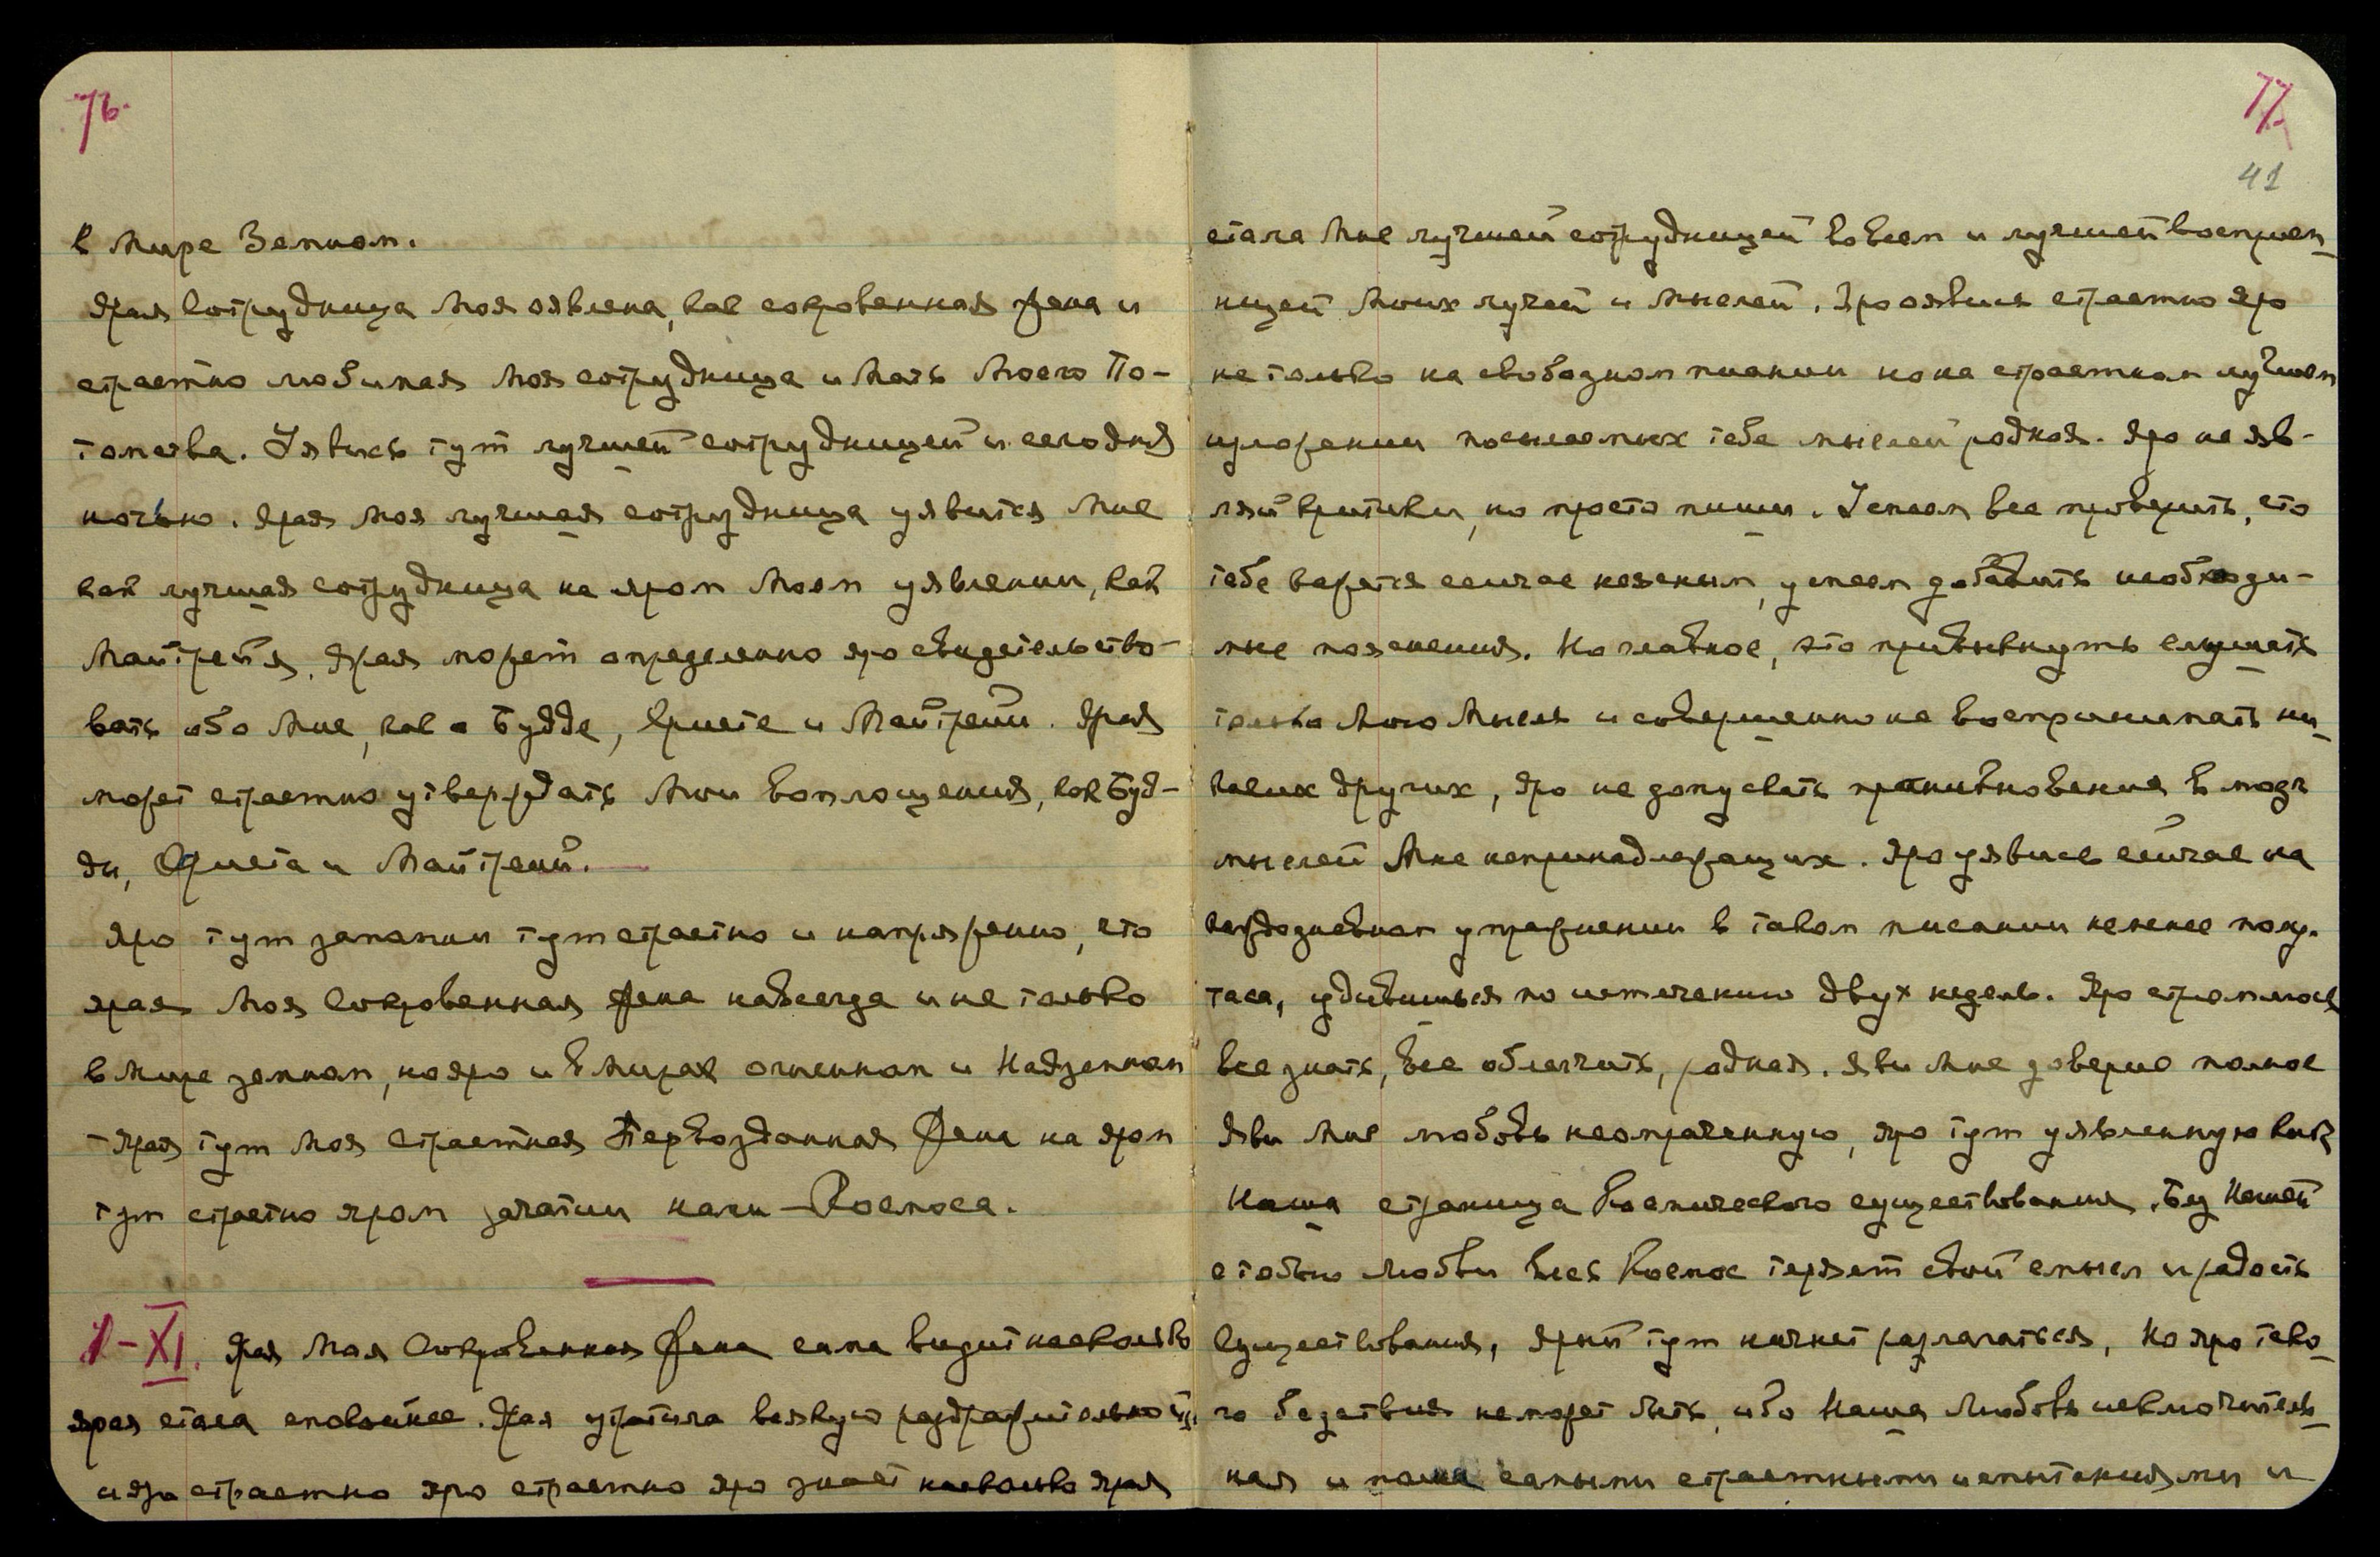 76.
в Мире Земном.
Ярая Сотрудница Моя оявлена, как сокровенная Жена и
страстно любимая Моя сотрудница и Мать Моего По-
томства. Уявись тут лучшей сотрудницей и сегодня
ночью. Ярая Моя лучшая сотрудница уявится Мне
как лучшая сотрудница на яром Моем уявлении, как
Майтрейя. Ярая может определенно яро свидетельство-
вать обо Мне, как о Будде, Христе и Майтрейи. Ярая
может страстно утверждать Мои Воплощения, как Буд-
ды, Христа и Майтрейи.
Яро тут запомни тут страстно и напряженно, что
ярая Моя Сокровенная Жена навсегда и не только
в Мире земном, но яро и в Мирах огненном и Надземном
- Ярая тут Моя Страстная Первозданная Жена на яром
тут страстно яром зачатии наш-Космоса.
1-XI. Ярая Моя Сокровенная Жена сама видит насколько
ярая стала спокойнее. Ярая утратила всякую раздражительность
и яро страстно яро страстно яро знает насколько ярая
77.
41
стала Мне лучшей сотрудницей во всем и лучшей восприем-
ницей Моих лучей и Мыслей. Яро оявись страстно яро
не только на свободном писании но на страстном лучшем
изложении посылаемых тебе мыслей родная. Яро не яв-
ляй критики, но просто пиши. Успеем все проверить, что
тебе кажется сейчас неясным, успеем добавить необходи-
мые пояснения. Но главное, это привыкнуть слушать
только Мою Мысль и совершенно не воспринимать ни-
каких других, яро не допускать проникновения в мозг
мыслей Мне непринадлежащих. Яро уявись сейчас на
каждодневном упражнении в таком писании не менее полу-
часа, удивишься по истечении двух недель. Яро стремлюсь
все знать, все облегчить, родная. Яви Мне доверие полное
Яви Мне любовь неомраченную, яро тут уявленную как
Наша страница Космического существования. Без Нашей
с тобою Любви весь Космос теряет свой смысл и радость
Существования, ярый тут начнет разлагаться, но яро тако-
го бедствия не может быть, ибо Наша Любовь исключитель-
ная и самыми страстными испытаниями и